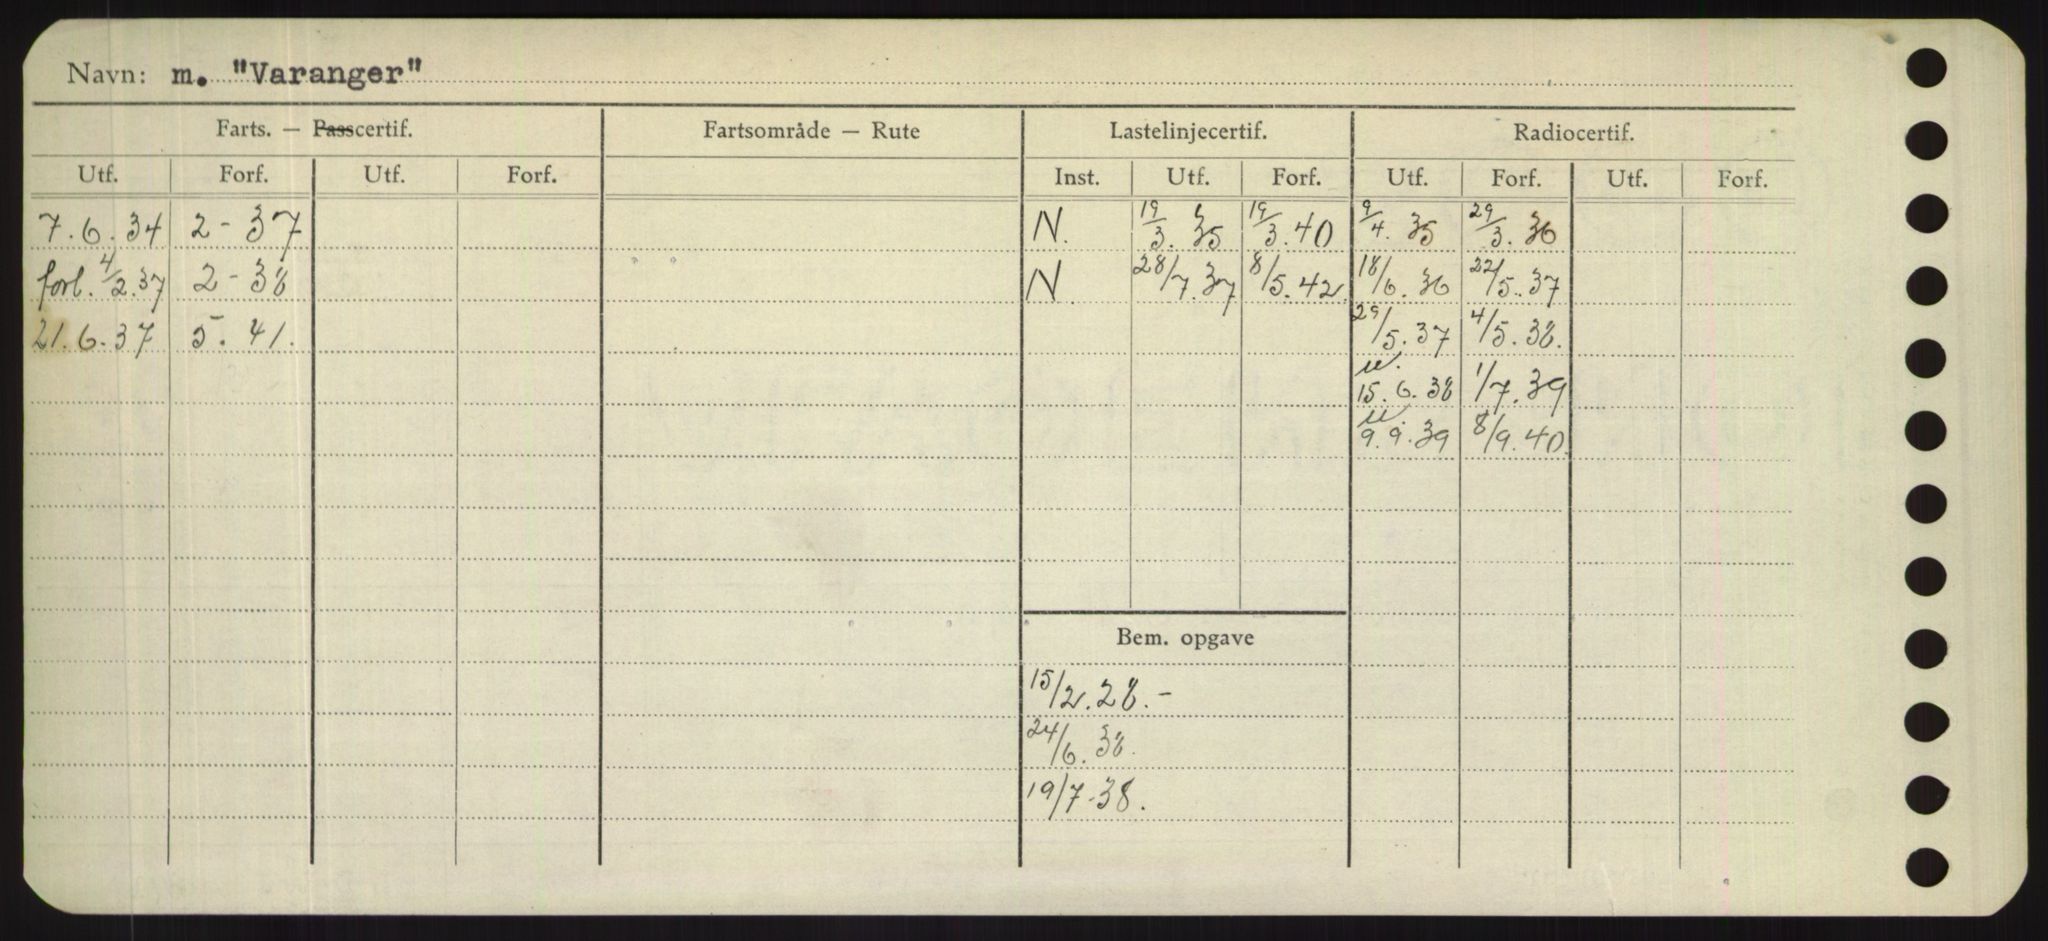 Navn: m. "Varanger"
Farts. — Passcertif. Fartsområde — Rute Lastelinjecertif. Radiocertif.
Utf. Forf. Utf. Forf. Inst. Utf. Forf. Utf. Forf. Utf. Forf.
7.6.34 2-37 N. 19/3.35 19/3.40 9/4.35 29/3.36
forl. 4/2.37 2-38 N. 28/7.37 8/5.42 18/6.36 22/5.37
21.6.37 5.41. 29/5.37 4/5.38.
u. 15.6.38 1/7.39
u. 9.9.39 8/9.40.
Bem. opgave
15/2.28.-
24/6.38.
19/7-38.